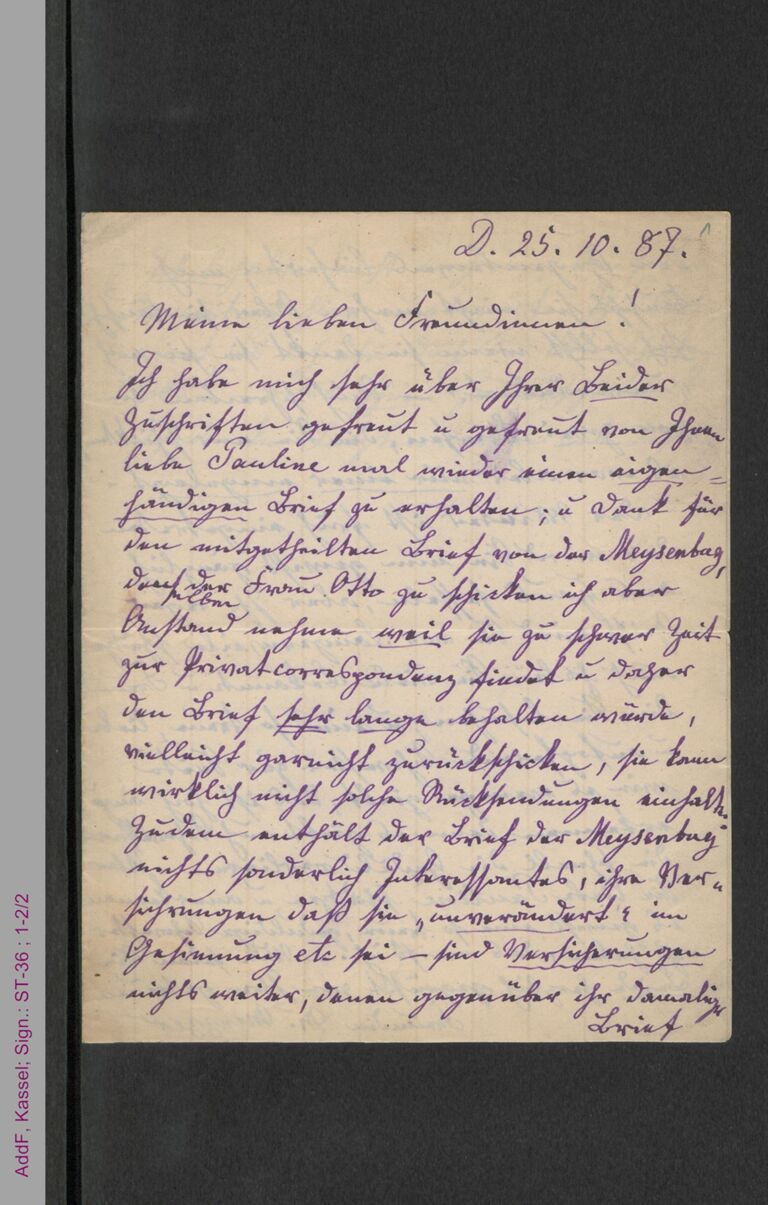 D. 25. 10. 87.
Meine lieben Freundinnen!
Ich habe mich sehr über Ihrer Beider
Zuschriften gefreut u gefreut von Ihnen
liebe Pauline mal wieder einen eigen=
händigen Brief zu erhalten; u Dank für
den mitgetheilten Brief von der Meysenbug,
denselben der Frau Otto zu schicken ich aber
Anstand nehme weil sie zu schwer Zeit
zur Privatcorrespondenz findet u daher
den Brief sehr lange behalten würde,
vielleicht garnicht zurückschicken, sie kann
wirklich nicht solche Rücksendungen einhalten.
Zudem enthält der Brief der Meysenbug
nichts sonderlich Interessantes, ihre Ver=
sichrungen daß sie „unverändert" im
Gesinnung etc sei – sind Versicherungen
nichts weiter, denen gegenüber ihr damaliger
Brief
AddF, Kassel; Sign.: ST-36 ; 1-2/2